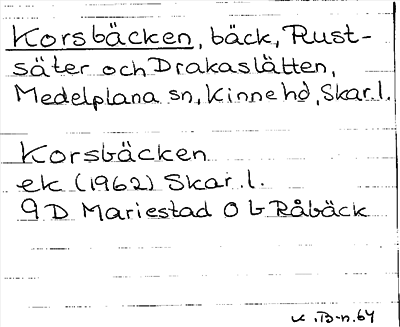 Korsbäcken, bäck, Rust-
säter och Drakaslätten,
Medelplana sn, Kinne hd, Skar.l.
Korsbäcken
ek (1962) Skar.l.
9D Mariestad O b Råbäck
K.B-n.64